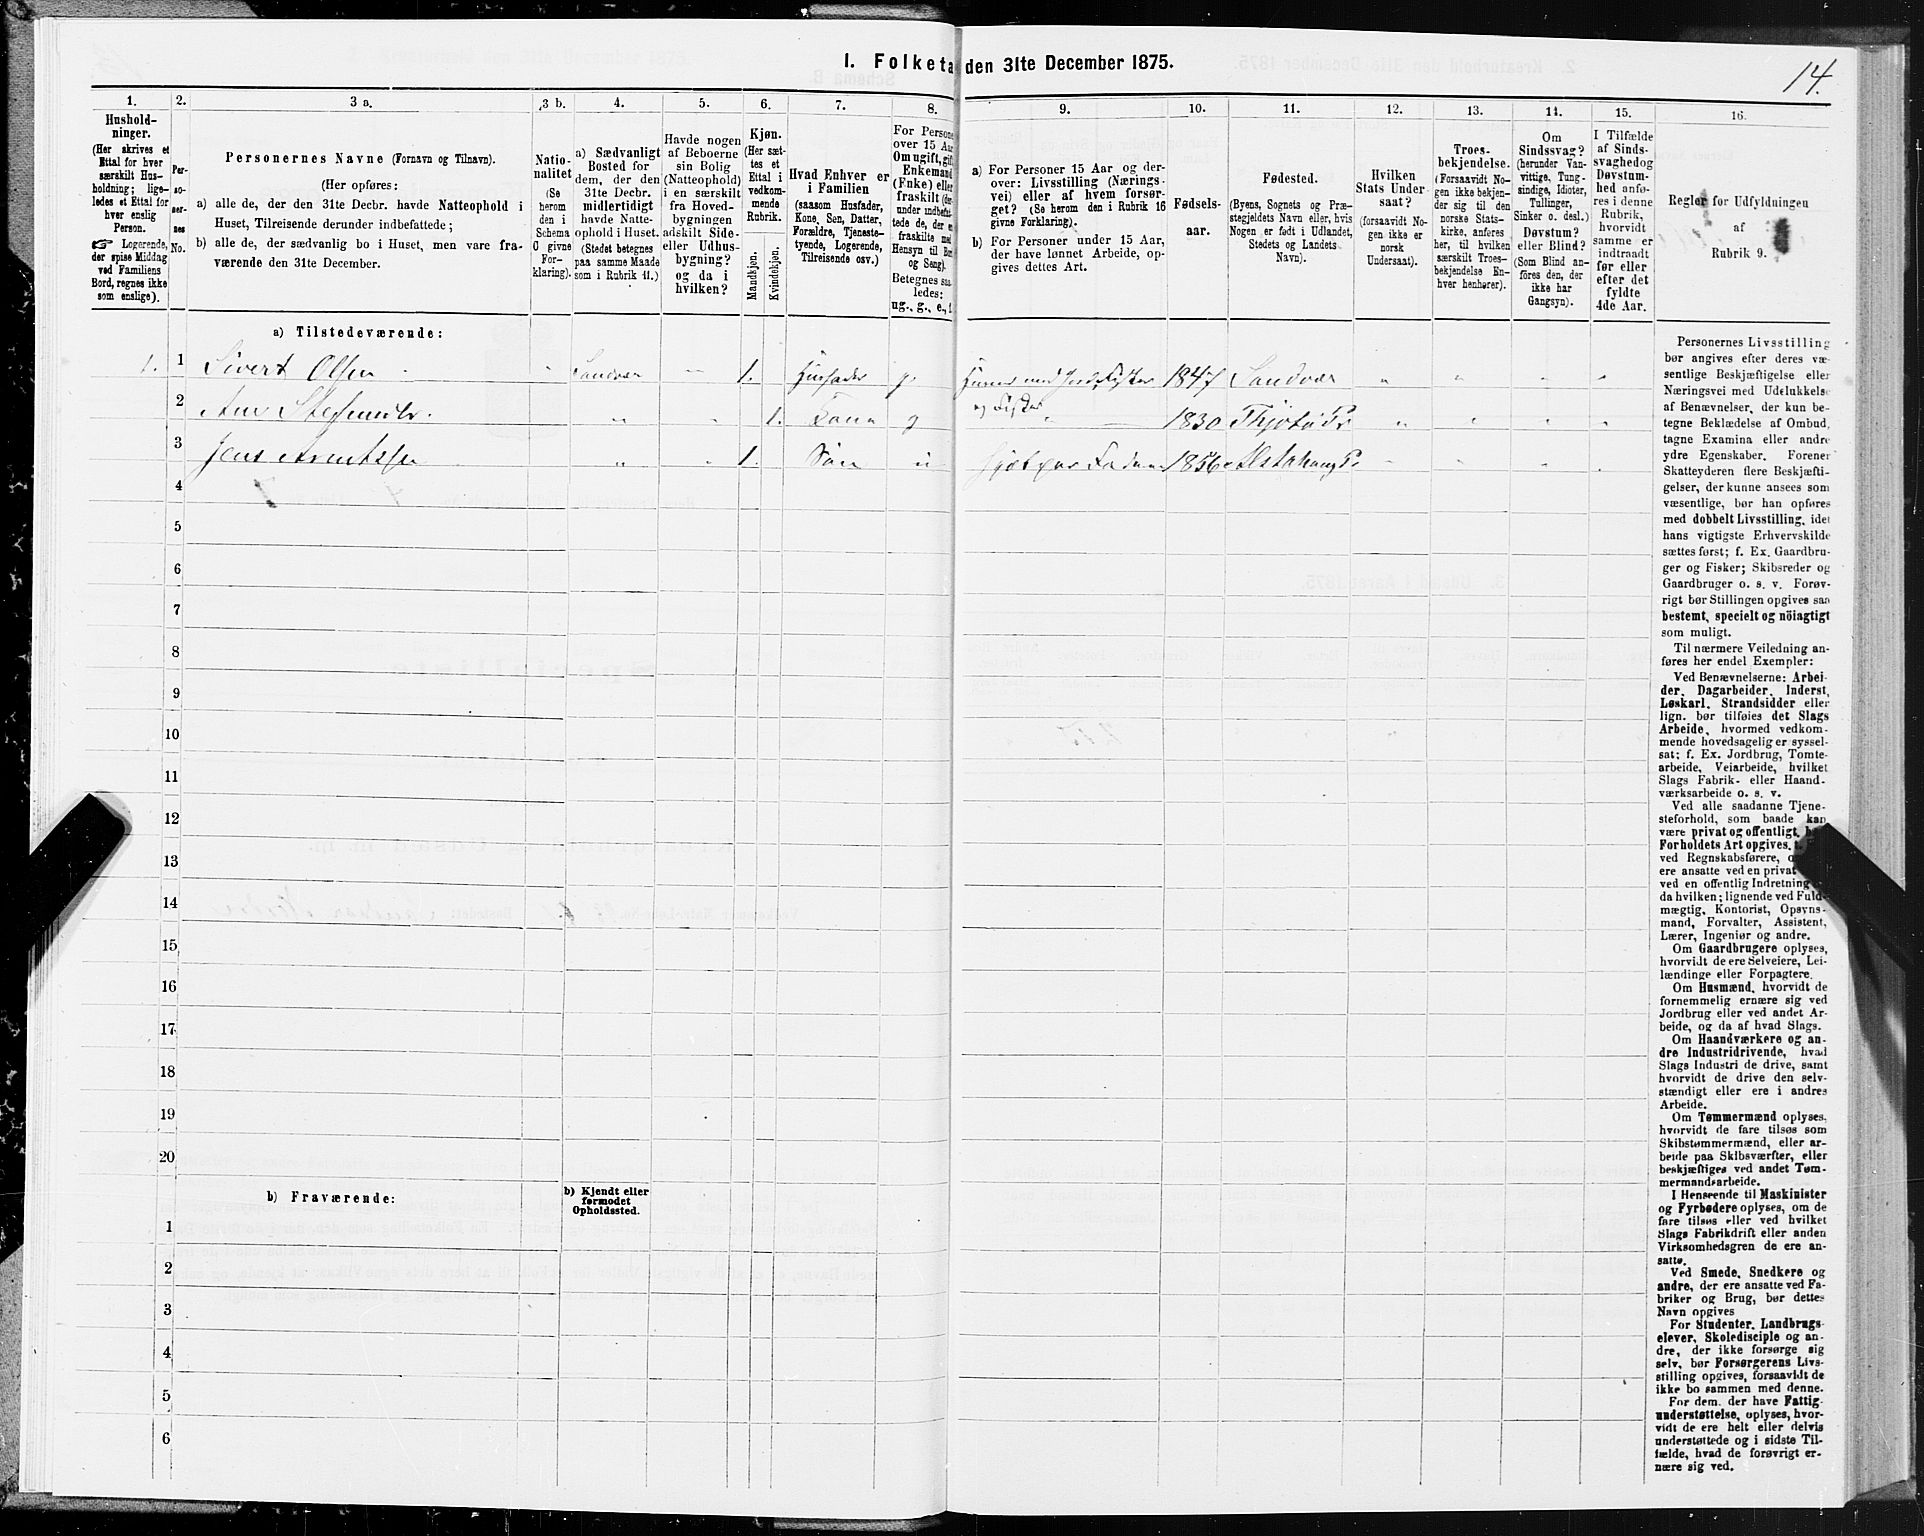 I. Folketa den 31te December 1875.
14.
1.
Hushold-
ninger.
(Her skrives et
Ettal for hver
særskilt Hus-
holdning; lige-
ledes et Ettal for
hver enslig
Person.
☞ Logerende,
der spise Middag
ved Familiens
Bord, regnes ikke
som enslige).
2.
Per-
so-
ner-
nes
No.
3 a.
Personernes Navne (Fornavn og Tilnavn).
(Her opføres:
a) alle de, der den 31te Decbr. havde Natteophold i
Huset, Tilreisende derunder indbefattede;
b) alle de, der sædvanlig bo i Huset, men vare fra-
værende den 31te December.
3 b.
Natio-
nalitet
(Se
herom
den i
Schema
C givne
For-
klaring).
4.
a) Sædvanligt
Bosted for
dem, der den
31te Decbr.
midlertidigt
havde Natte-
ophold i Huset.
(Stedet betegnes
paa samme Maade
som i Rubrik 11.)
5.
Havde nogen
af Beboerne
sin Bolig
(Natteophold)
i en særskilt
fra Hoved-
bygningen
adskilt Side-
eller Udhus-
bygning?
og da i
hvilken?
6.
Kjøn.
(Her sæt-
tes et
Ettal i
vedkom-
mende
Rubrik.
Mandkjøn.
Kvindekjøn.
7.
Hvad Enhver er
i Familien
(saasom Husfader,
Kone, Søn, Datter,
Forældre, Tjeneste-
tyende, Logerende,
Tilreisende osv.)
8.
For Persone
over 15 Aar
Om ugift, gift
Enkemand
(Enke) eller
fraskilt (der-
under indbefat-
tede de, der er
fraskilte med
Hensyn til Bor
og Seng).
Betegnes saa-
ledes:
ug., g., e., f.
9.
a) For Personer 15 Aar og der-
over: Livsstilling (Nærings-
vei) eller af hvem forsør-
get? (Se herom den i Rubrik 16
givne Forklaring).
b) For Personer under 15 Aar,
der have lønnet Arbeide, op-
gives dettes Art.
10.
Fødsels-
aar.
11.
Fødested.
(Byens, Sognets og Præ-
stegjeldets Navn eller, hvis
Nogen er født i Udlandet,
Stedets og Landets
Navn).
12.
Hvilken
Stats Under-
saat?
(forsaavidt No-
gen ikke er
norsk
Undersaat).
13.
Troes-
bekjendelse.
(Forsaavidt No-
gen ikke bekjen-
der sig til den
norske Stats-
kirke, anføres
her, til hvilken
særskilt Troes-
bekjendelse En-
hver henhører).
14.
Om
Sindssvag?
(herunder Van-
vittige, Tung-
sindige, Idioter,
Tullinger,
Sinker o. desl.)
Døvstum?
eller Blind?
(Som Blind an-
føres den, der
ikke har
Gangsyn).
15.
I Tilfælde
af Sinds-
svaghed og
Døvstum-
hed anfø-
res i denne
Rubrik,
hvorvidt
samme er
indtraadt
før eller
efter det
fyldte
4de Aar.
16.
Regler for Udfyldningen
af
Rubrik 9.
a) Tilstedeværende:
1. 1 Sivert Olsen " Sandvær " 1. Husfader g. 1847 Sandvær " " " "
2 " " 1. Kone g og Fisker " 1830 Thjøtø Pr " " "
3 Jens Arentsen " " 1. Søn u Hjelper Faderen 1856 Alstahaug Pr. " " "
4
5
6
7
8
9
10
11
12
13
14
15
16
17
18
19
20
b) Fraværende:
b) Kjendt eller
formodet
Opholdssted.
1
2
3
4
5
6
Personernes Livsstilling
bør angives efter deres væ-
sentlige Beskjæftigelse eller
Næringsvei med Udelukkelse
af Benævnelser, der kun be-
tegne Beklædelse af Ombud,
tagne Examina eller andre
ydre Egenskaber. Forener
Skatteyderen flere Beskjæfti-
gelser, der kunne ansees som
væsentlige, bør han opføres
med dobbelt Livsstilling, idet
hans vigtigste Erhvervskilde
sættes først; f. Ex. Gaardbru-
ger og Fisker; Skibsreder og
Gaardbruger o. s. v. Forøv-
rigt bør Stillingen opgives saa
bestemt, specielt og nöiagtigt
som muligt.
Til nærmere Veiledning an-
føres her endel Exempler:
Ved Benævnelserne: Arbei-
der, Dagarbeider, Inderst,
Løskarl, Strandsidder eller
lign. bør tilføies det Slags
Arbeide, hvormed vedkom-
mende hovedsagelig er syssel-
sat; f. Ex. Jordbrug, Tomte-
arbeide, Veiarbeide, hvilket
Slags Fabrik- eller Haand-
værksarbeide o. s. v.
Ved alle saadanne Tjene-
steforhold, som baade kan
være privat og offentligt,
Forholdets Art opgives,
ved Regnskabsførere,
ere ansatte ved en privat
ved en offentlig Indretning
da hvilken; lignende ved Fuld-
mægtig, Kontorist, Opsyns-
mand, Forvalter, Assistent,
Lærer, Ingeniør og andre.
Om Gaardbrugere oplyses,
hvorvidt de ere Selveiere, Lei-
lændinge eller Forpagtere.
Om Husmænd, hvorvidt de
fornemmelig ernære sig ved
Jordbrug eller ved andet Ar-
beide, og da af hvad Slags.
Om Haandværkere og an-
dre Industridrivende, hvad
Slags Industri de drive, samt
hvorvidt de drive den selv-
stændigt eller ere i andres
Arbeide.
Om Tømmermænd oplyses,
hvorvidt de fare tilsøs som
Skibstømmermænd, eller ar-
beide paa Skibsværfter, eller
beskjæftiges ved andet Tøm-
mermandsarbeide.
I Henseende til Maskinister
og Fyrbødere oplyses, om de
fare tilsøs eller ved hvilket
Slags Fabrikdrift eller anden
Virksomhedsgren de ere an-
satte.
Ved Smede, Snedkere og
andre, der ere ansatte ved Fa-
briker og Brug, bør dettes
Navn opgives
For Studenter, Landbrugs-
elever, Skoledisciple og an-
dre, der ikke forsørge sig
selv, bør Forsørgerens Livs-
stilling opgives, forsaavidt de
ikke bo sammen med denne.
For dem, der have Fattig-
understøttelse, oplyses, hvor-
vidt de ere helt eller delvis
understøttede og i sidste Til-
fælde, hvad de forøvrigt er-
nære sig ved.